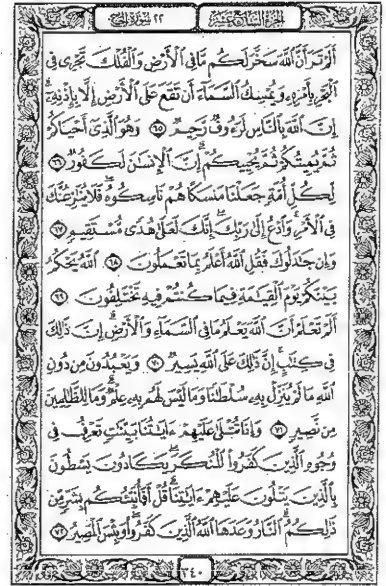 الجزء السابع عشر
٢٢ سورة الحج
أَلَمْ تَرَ أَنَّ اللَّهَ سَخَّرَ لَكُم مَّا فِي الْأَرْضِ وَالْفُلْكَ تَجْرِي فِي
الْبَحْرِ بِأَمْرِهِ وَيُمْسِكُ السَّمَاءَ أَن تَقَعَ عَلَى الْأَرْضِ إِلَّا بِإِذْنِهِ
إِنَّ اللَّهَ بِالنَّاسِ لَرَءُوفٌ رَّحِيمٌ ٦٥ وَهُوَ الَّذِي أَحْيَاكُمْ
ثُمَّ يُمِيتُكُمْ ثُمَّ يُحْيِيكُمْ إِنَّ الْإِنسَانَ لَكَفُورٌ ٦٦
لِكُلِّ أُمَّةٍ جَعَلْنَا مَنسَكًا هُمْ نَاسِكُوهُ فَلَا يُنَازِعُنَّكَ
فِي الْأَمْرِ وَادْعُ إِلَى رَبِّكَ إِنَّكَ لَعَلَى هُدًى مُّسْتَقِيمٍ ٦٧
وَإِن جَادَلُوكَ فَقُلِ اللَّهُ أَعْلَمُ بِمَا تَعْمَلُونَ ٦٨ اللَّهُ يَحْكُمُ
بَيْنَكُمْ يَوْمَ الْقِيَامَةِ فِيمَا كُنتُمْ فِيهِ تَخْتَلِفُونَ ٦٩
أَلَمْ تَعْلَمْ أَنَّ اللَّهَ يَعْلَمُ مَا فِي السَّمَاءِ وَالْأَرْضِ إِنَّ ذَلِكَ
فِي كِتَابٍ إِنَّ ذَلِكَ عَلَى اللَّهِ يَسِيرٌ ٧٠ وَيَعْبُدُونَ مِن دُونِ
اللَّهِ مَا لَمْ يُنَزِّلْ بِهِ سُلْطَانًا وَمَا لَيْسَ لَهُم بِهِ عِلْمٌ وَمَا لِلظَّالِمِينَ
مِن نَّصِيرٍ ٧١ وَإِذَا تُتْلَى عَلَيْهِمْ ءَايَاتُنَا بَيِّنَاتٍ تَعْرِفُ فِي
وُجُوهِ الَّذِينَ كَفَرُوا الْمُنكَرَ يَكَادُونَ يَسْطُونَ
بِالَّذِينَ يَتْلُونَ عَلَيْهِمْ ءَايَاتِنَا قُلْ أَفَأُنَبِّئُكُم بِشَرٍّ مِّن
ذَلِكُمُ النَّارُ وَعَدَهَا اللَّهُ الَّذِينَ كَفَرُوا وَبِئْسَ الْمَصِيرُ ٧٢
٣٤٠